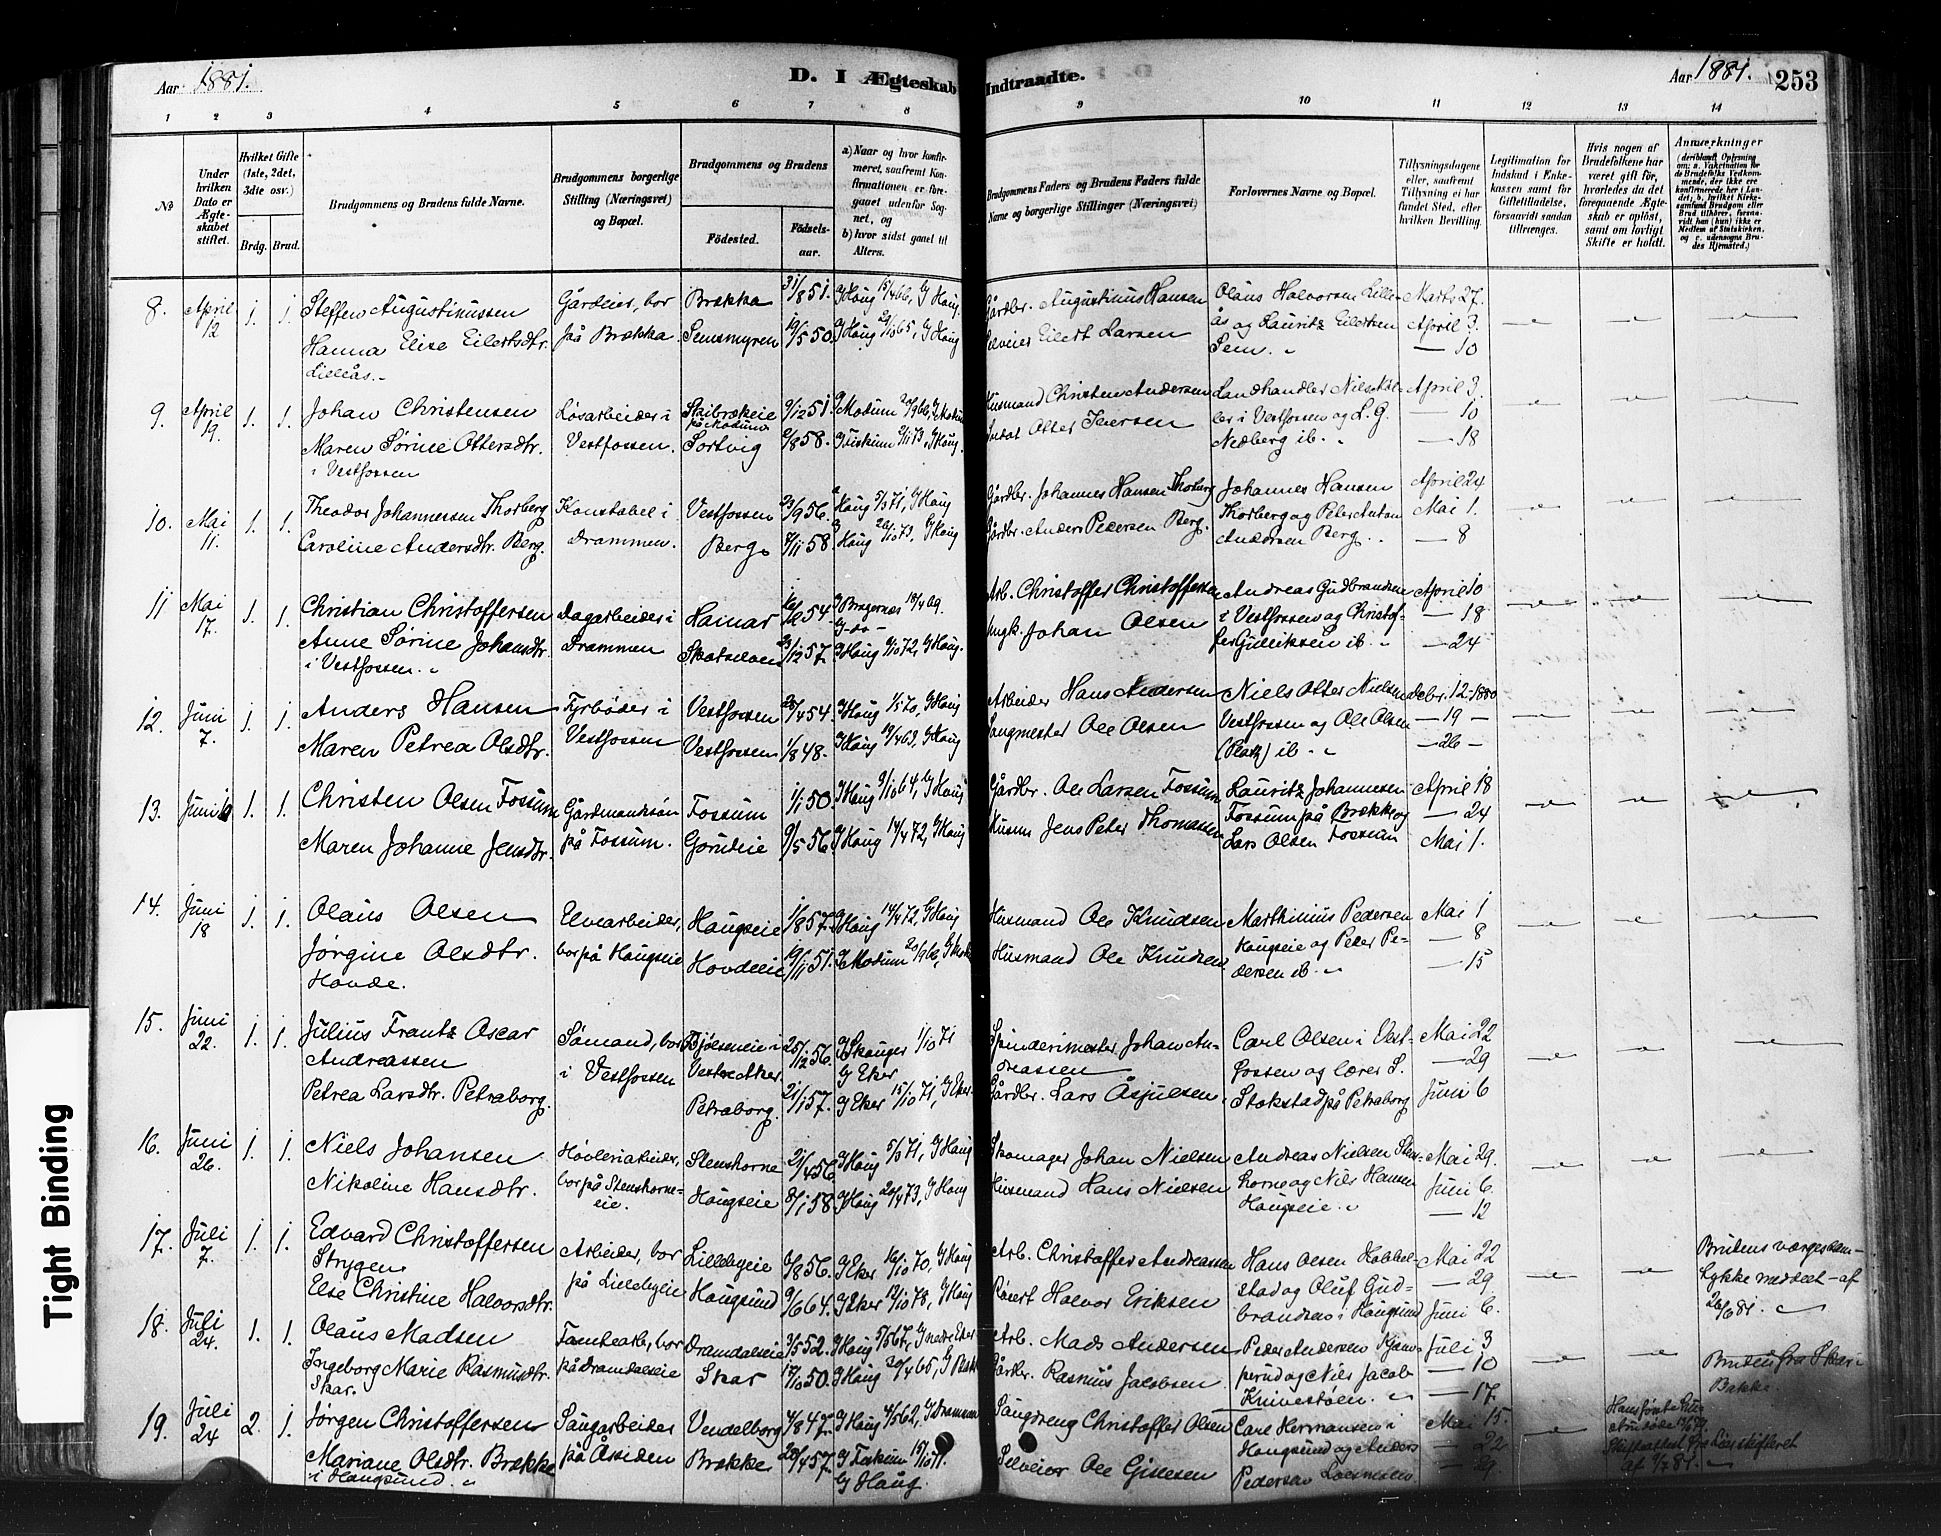 Aar 1881.
D. I Ægteskab Indtraadte.
Aar 1881.
253
1 2 3 4 5 6 7 8 9 10 11 12 13 14
No
Under hvilken Dato er Ægteskabet stiftet.
Hvilket Gifte (1ste, 2det, 3die osv.)
Brdg. Brud.
Brudgommens og Brudens fulde Navne.
Brudgommens borgerlige Stilling (Næringsvei) og Bopæl.
Brudgommens og Brudens
Fødested.
Fødsels-aar.
a) Naar og hvor konfirmeret, saafremt Konfirmationen er foregaaet udenfor Sognet, og
b) hvor sidst gaaet til Alters.
Brudgommens Faders og Brudens Faders fulde Navne og borgerlige Stillinger (Næringsvei)
Forlovernes Navne og Bopæl.
Tillysningsdagene eller, saafremt Tillysning ei har fundet Sted, efter hvilken Bevilling.
Legitimation for Indskud i Enkekassen samt for Giftetilladelse, forsaavidt saadan tiltrænges.
Hvis nogen af Brudefolkene har været gift før, hvorledes da det foregaaende Ægteskab er opløst, samt om lovligt Skifte er holdt.
Anmærkninger
8. April 12 1. 1. Steffen Augustinussen Gårdeier, bor Brække 31/8 51. Gårdbr. Augustinus Hansen Olaus Halvorsen Lille- Marts 27.
Hanna Elise Eilertsdtr. på Brækka. Semsmyren 19/5 50. Selveier Eilert Larsen ås og Lauritz Eilertsen April 3.
Lillås. Sem. — 10
9. April 19. 1. 1. Johan Christensen Løsarbeider i 9/12 51. Husmand Christen Andersen Landhandler Nils April 3.
på Modum
Maren Sørine Ottersdtr. Vestfossen. Sortvig 8/8 58. Otter Iversen i Vestfossen og L. G. — 10
i Vestfossen Nedberg ib. — 18
10. Mai 11. 1. 1. Theodor Johannessen Thorberg Konstabel i Vestfossen 23/9 56. Haug 5/3 71, G Haug Gårdbr. Johannes Hansen Thorberg Johannes Hansen April 24
Caroline Andersdtr. Berg. Drammen. Berg Haug 26/10 73, G Haug Gårdbr. Anders Pedersen Berg. Thorberg og Peter Anton Mai 1.
Andersen Berg. — 8
11 Mai 17. 1. 1. Christian Christoffersen Dagarbeider i Hamar Bragernes 18/4 69. Arb. Christoffer Christoffersen Andreas Gudbrandsen April 10
Anne Sørine Johansdtr. Drammen Skotselven 23/12 57. Haug 6/10 72, G Haug. Ungk. Johan Olsen i Vestfossen og Christof- — 18
i Vestfossen. fer Gulliksen ib. — 24
12. Juni 7. 1. 1. Anders Hansen Fyrbøder i Vestfossen 28/4 54. G Haug 1/5 70, G Haug Arbeider Hans Andersen Niels Otter Nielsen Decbr. 12-1880
Maren Petrea Olsdtr. Vestfossen Vestfossen 1/8 48. G Haug 19/4 63, G Haug Sangmester Ole Olsen Vestfossen og Ole Olsen — 19 —
(Plads) ib. — 26 —
13. Juni 1. 1. Christen Olsen Fossum Gårdmandssøn Fossum 1/1 50. G Haug 9/10 64, G Haug Gårdbr. Ole Larsen Fossum Lauritz Johannesen April 18
Maren Johanne Jensdtr. på Fossum. 9/5 56. G Haug 14/4 72, G Haug Husm. Jens Peter Thomassen Fossum på Brække og — 24
Lars Olsen Fossum Mai 1.
14. Juni 18 1. 1. Olaus Olsen Elvearbeider, Haugseie 1/8 57. G Haug 14/4 72, G Haug Husmand Ole Knudsen Marthinius Pedersen Mai 1
Jørgine Olsdtr. bor på Haugseie Hovdeie 19/11 51. Modum 20/9 66, G Husmand Ole Knudsen Haugseie og Peder Pe- — 8
Hovde. dersen ib. — 15
15. Juni 22. 1. 1. Julius Frantz Oscar Sømand, bor Bjølseneie i 25/12 56. G Skauger 1/10 71 Spinderimester Johan An- Carl Olsen i Vest- Mai 22
Andreassen i Vestfossen Vestre Aker G Eker dreassen fossen og lærer S. — 29
Petrea Larsdtr. Petraborg. Petraborg. 21/1 57. G Eker 15/10 71, G Eker. Gårdbr. Lars Åsjulsen Stokstad på Petraborg Juni 6
16. Juni 26. 1. 1. Niels Johansen Høvleriarbeider, Stenshorne 21/4 56. G Haug 5/3 71, G Haug Skomager Johan Nielsen Andreas Nielsen Stens- Mai 29.
Nikoline Hansdtr. bor på Stenshorne- Haugseie 8/1 58 G Haug 20/4 73, G Haug Husmand Hans Nielsen horne og Nils Hansen Juni 6.
eie. Haugseie. — 12
17. Juli 7. 1. 1. Edvard Christoffersen Arbeider, bor Lillebyeie 6/8 56. G Eker 16/10 70, G Haug Arb. Christoffer Andreassen Hans Olsen Hobbel- Mai 22 Brudens værges sam-
Strygen på Lillebyeie stad og Oluf Gud- — 29 tykke meddelt — af
Else Christine Halvorsdtr. Haugsund 9/6 64. G Eker 12/10 78, G Haug Halvor Eriksen brandsen i Haugsund Juni 6. 26/6 81.
18. Juli 24. 1. 1. Olaus Madsen Tomtearb., bor Dramdalseie 3/5 52. G Haug 5/5 67, G nedre Eker Arb. Mads Andersen Peder Andersen Juli 3
Ingeborg Marie Rasmusdtr. på Dramdalseie Skar 17/10 50. G Haug 20/4 65, Gårdbr. Rasmus Jacobsen og Nils Jacob — 10 Bruden fra Skar i
Skar. Knivestølen. — 17. Bakke
19. Juli 24 2. 1. Jørgen Christoffersen Saugarbeider Vendelborg 4/8 47. G Haug 4/5 62, G Drammen Saugdreng Christoffer Olsen Carl Hermansen i Mai 15.
Mariane Olsdtr. Brække på Åssiden Brække 28/4 57. G Fiskum 15/10 71. Selveier Ole Gislesen Haugsund og Anders — 22
i Haugsund. G Haug. Pedersen — 29.
af 9/7 81.
Tight Binding